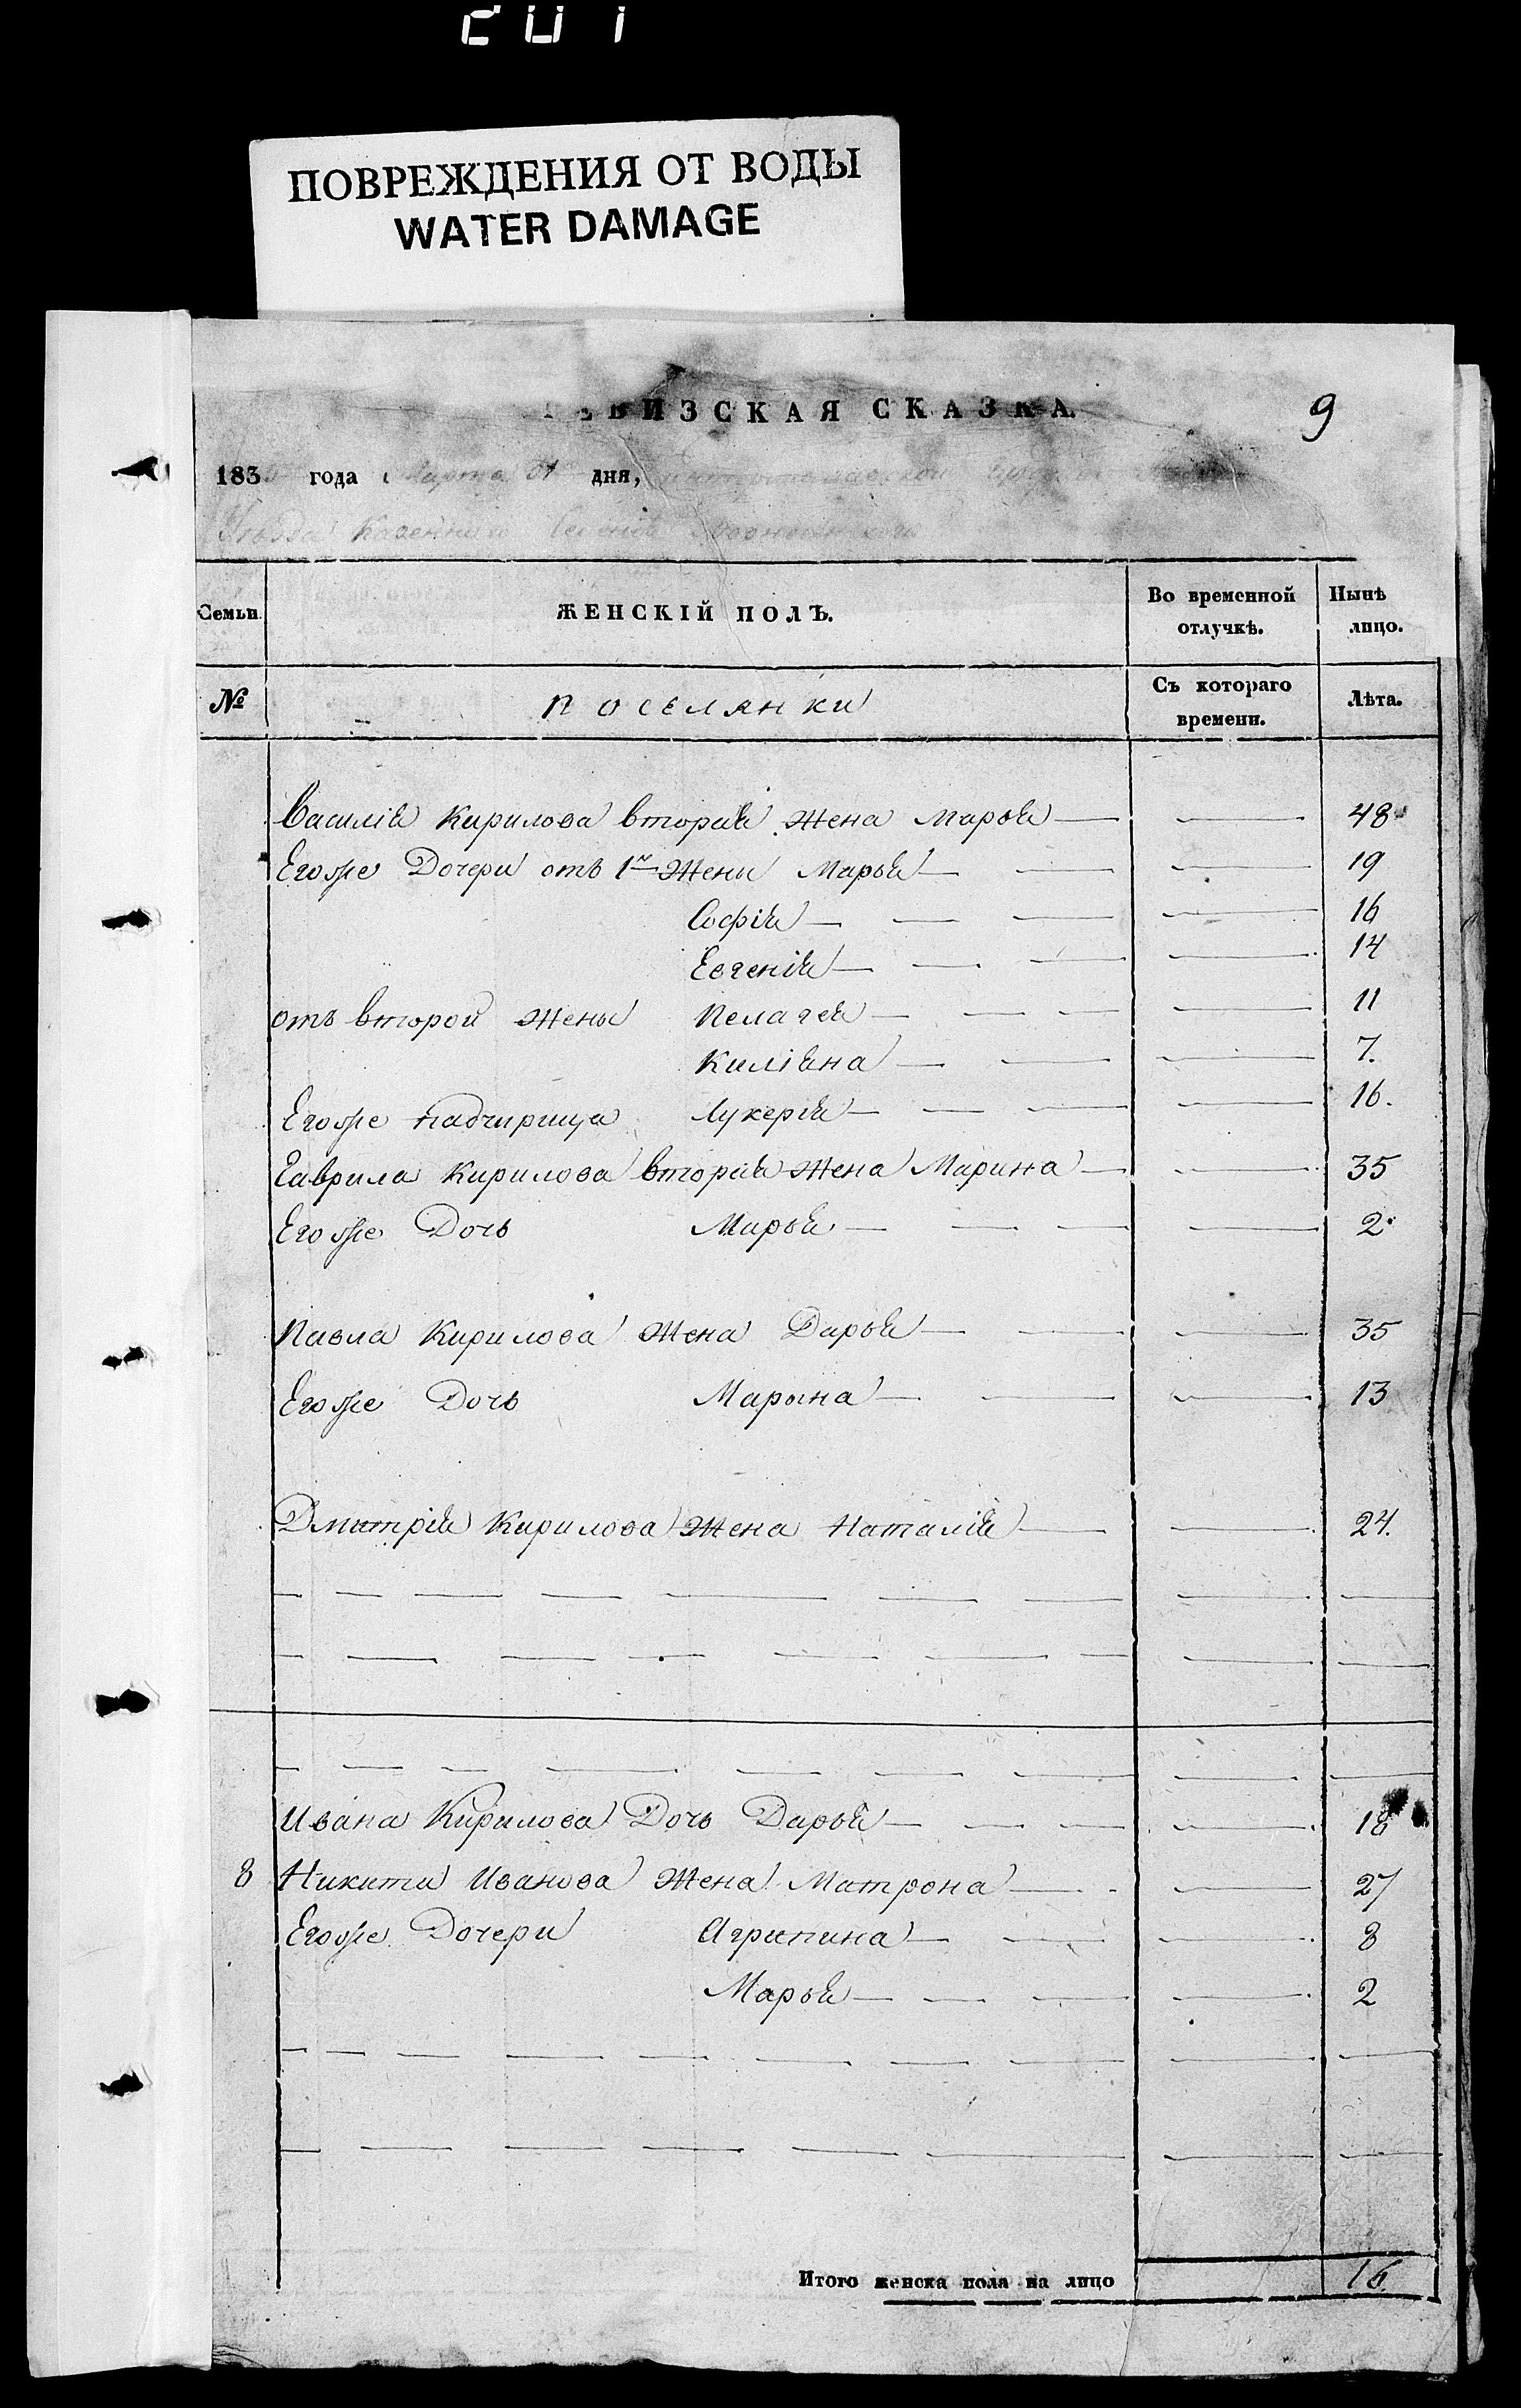 ПОВРЕЖДЕНИЯ ОТ ВОДЫ
WATER DAMAGE
РЕВИЗСКАЯ СКАЗКА.
9
183 года Марта дня,
Уѣзда Казеннаго Селенія
Семьи. ЖЕНСКІЙ ПОЛЪ. Во временной отлучкѣ. Нынѣ лицо.
№ Поселянки Съ котораго времени. Лѣта.
Василія Кирилова вторая жена Марья 48
Егоже Дочери отъ 1й Жены Марья 19
Софія 16
Евгенія 14
отъ второй жены Пелагея 11
Киліяна 7.
Егоже падчирица Лукерія 16.
Гаврила Кирилова вторая жена Марина 35
Егоже Дочь Марья 2
Павла Кирилова жена Дарья 35
Егоже Дочь Марына 13
Дмитрія Кирилова жена Наталія 24.
Ивана Кирилова Дочь Дарья 18
8 Никиты Иванова Жена Матрона 27
Егоже Дочери Агрипина 8
Марья 2
Итого женска пола на лицо 16.